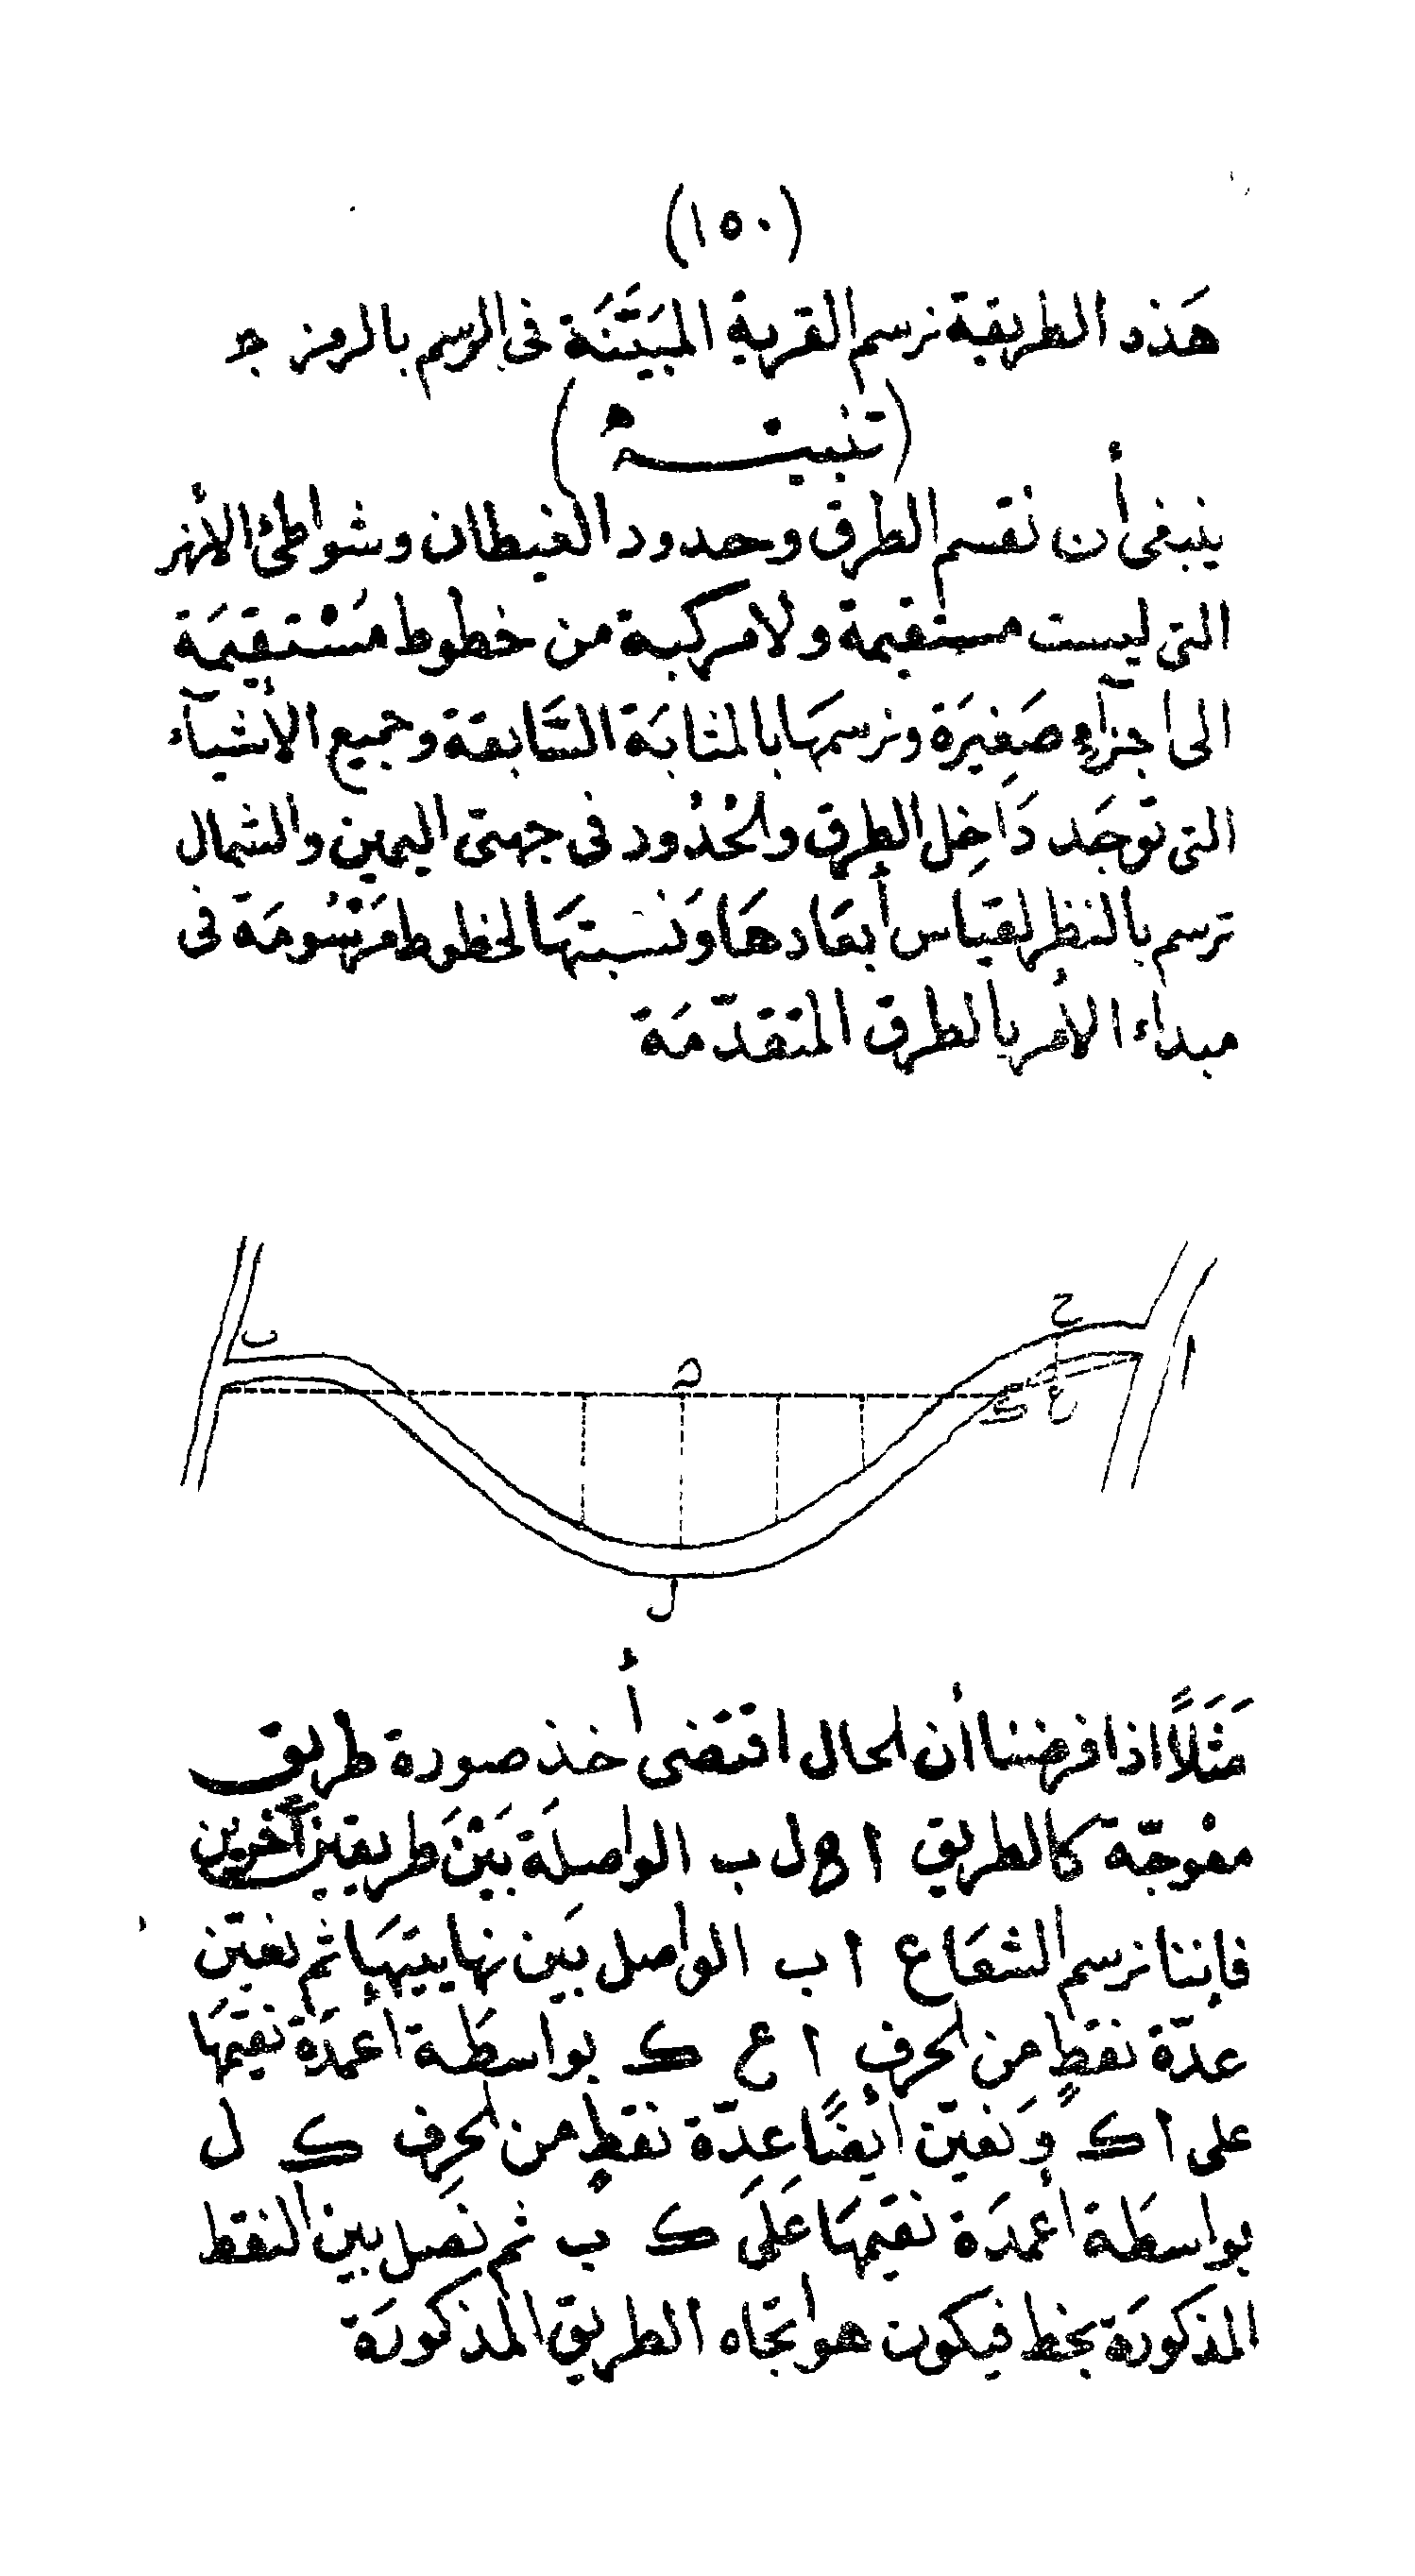 (١٥٠)
هَذه الطريقة نرسم القرية المبَيَّنَة فى الرسم بالرمز جـ
(تنبيــه)
ينبغى أن نقسم الطرق وحدود الغيطان وشواطئ الأنهر
التى ليست مستقيمة ولا مركبة من خطوط مُسْتقِيمَة
الى أجزآءٍ صَغِيرَة ونرسمهَا بالمثابَة السَّابقة وجميع الأشيآء
التى توجَد دَاخِل الطرق والحُدُود فى جهتى اليمين والشمال
ترسم بالنظر لقياس أبعَادهَا وَنسْبتهَا لخطوط مَرْسُومَة فى
مبداء الأمر بالطرق المتقدّمَة
ب
ح
ا
ع
ك
ل
مَثَلاً اذا فرضنا أن الحال اقتضى أخذ صورة طريق
معْوجّة كالطريق ا ل ب الواصلَة بَيْنَ طريقين آخرين
فاننا نرسم الشعَاع ا ب الواصل بَين نهايتيهَا ثم نعيّن
عدّة نقطٍ من الحرف ا ع ك بواسطَة أعمدَة نقيمهَا
على ا ك وَنعيّن أيضًا عِدّة نقطٍ من الحرف ك ل
بواسطَة أعمدَة نقيمهَا عَلَى ك ب ثم نصل بين النقط
المذكورَة بخط فيكون هو اتجاه الطريق المذكورَة